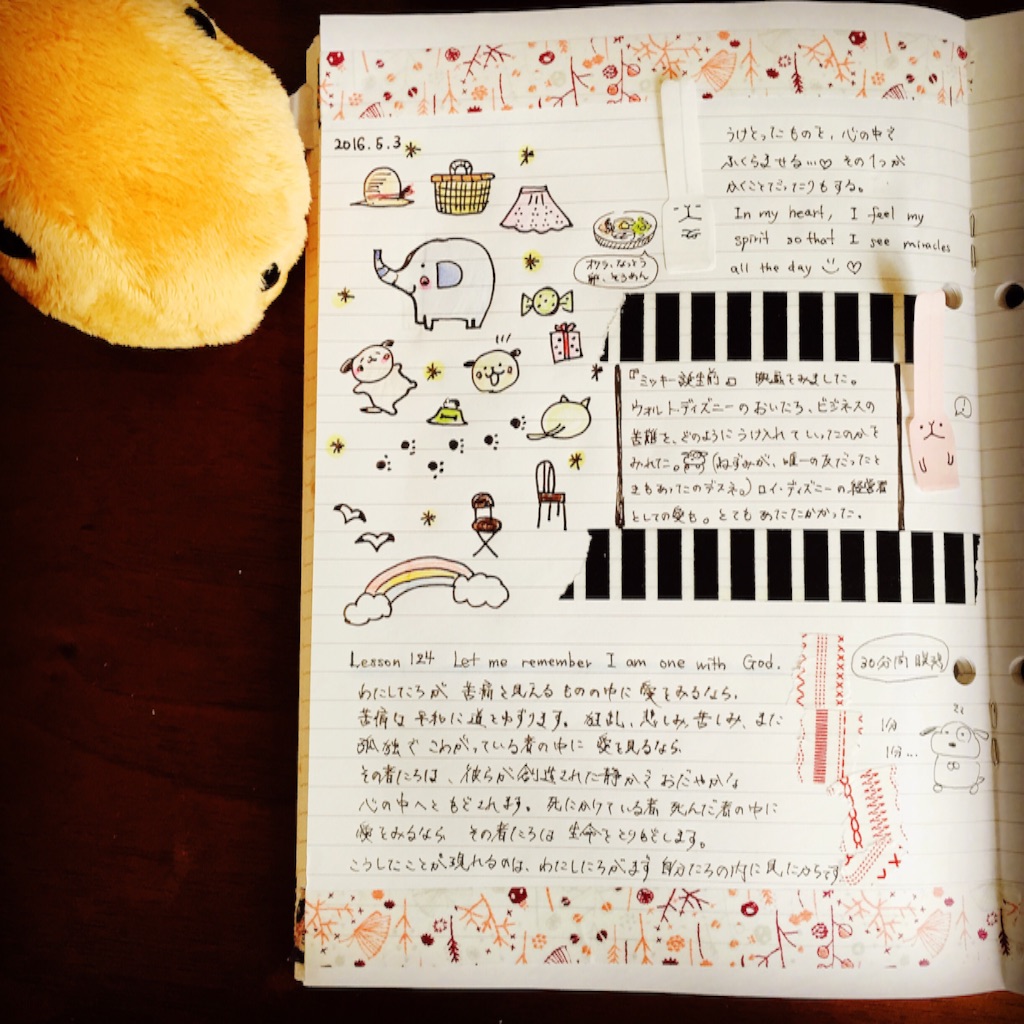 2016.5.3
うけとったものを、心の中で
ふくらませる…♡ その1つが
かくことだったりもする。
In my heart, I feel my
spirit so that I see miracles
all the day ♡
オクラ、なっとう
卵、そうめん
『ミッキー誕生前』 映画をみました。
ウォルト・ディズニーのおいたち、ビジネスの
苦難を、どのようにうけ入れていったのかを
みれた。(ねずみが、唯一の友だったと
きもあったのデスネ。) ロイ・ディズニーの経営者
としての愛も。とてもあたたかかった。
Lesson 124 Let me remember I am one with God.
わたしたちが 苦痛と見えるものの中に 愛をみるなら、
苦痛は 平和に道をゆずります。狂乱、悲しみ、苦しみ、また
孤独で こわがっている者の中に 愛を見るなら
その者たちは、彼らが創造された静かでおだやかな
心の中へと もどされます。死にかけている者 死んだ者の中に
愛をみるなら その者たちは 生命をとりもどします。
こうしたことが現れるのは、わたしたちがまず 自分たちの内に見たからです
30分間
zz
1分
1分…